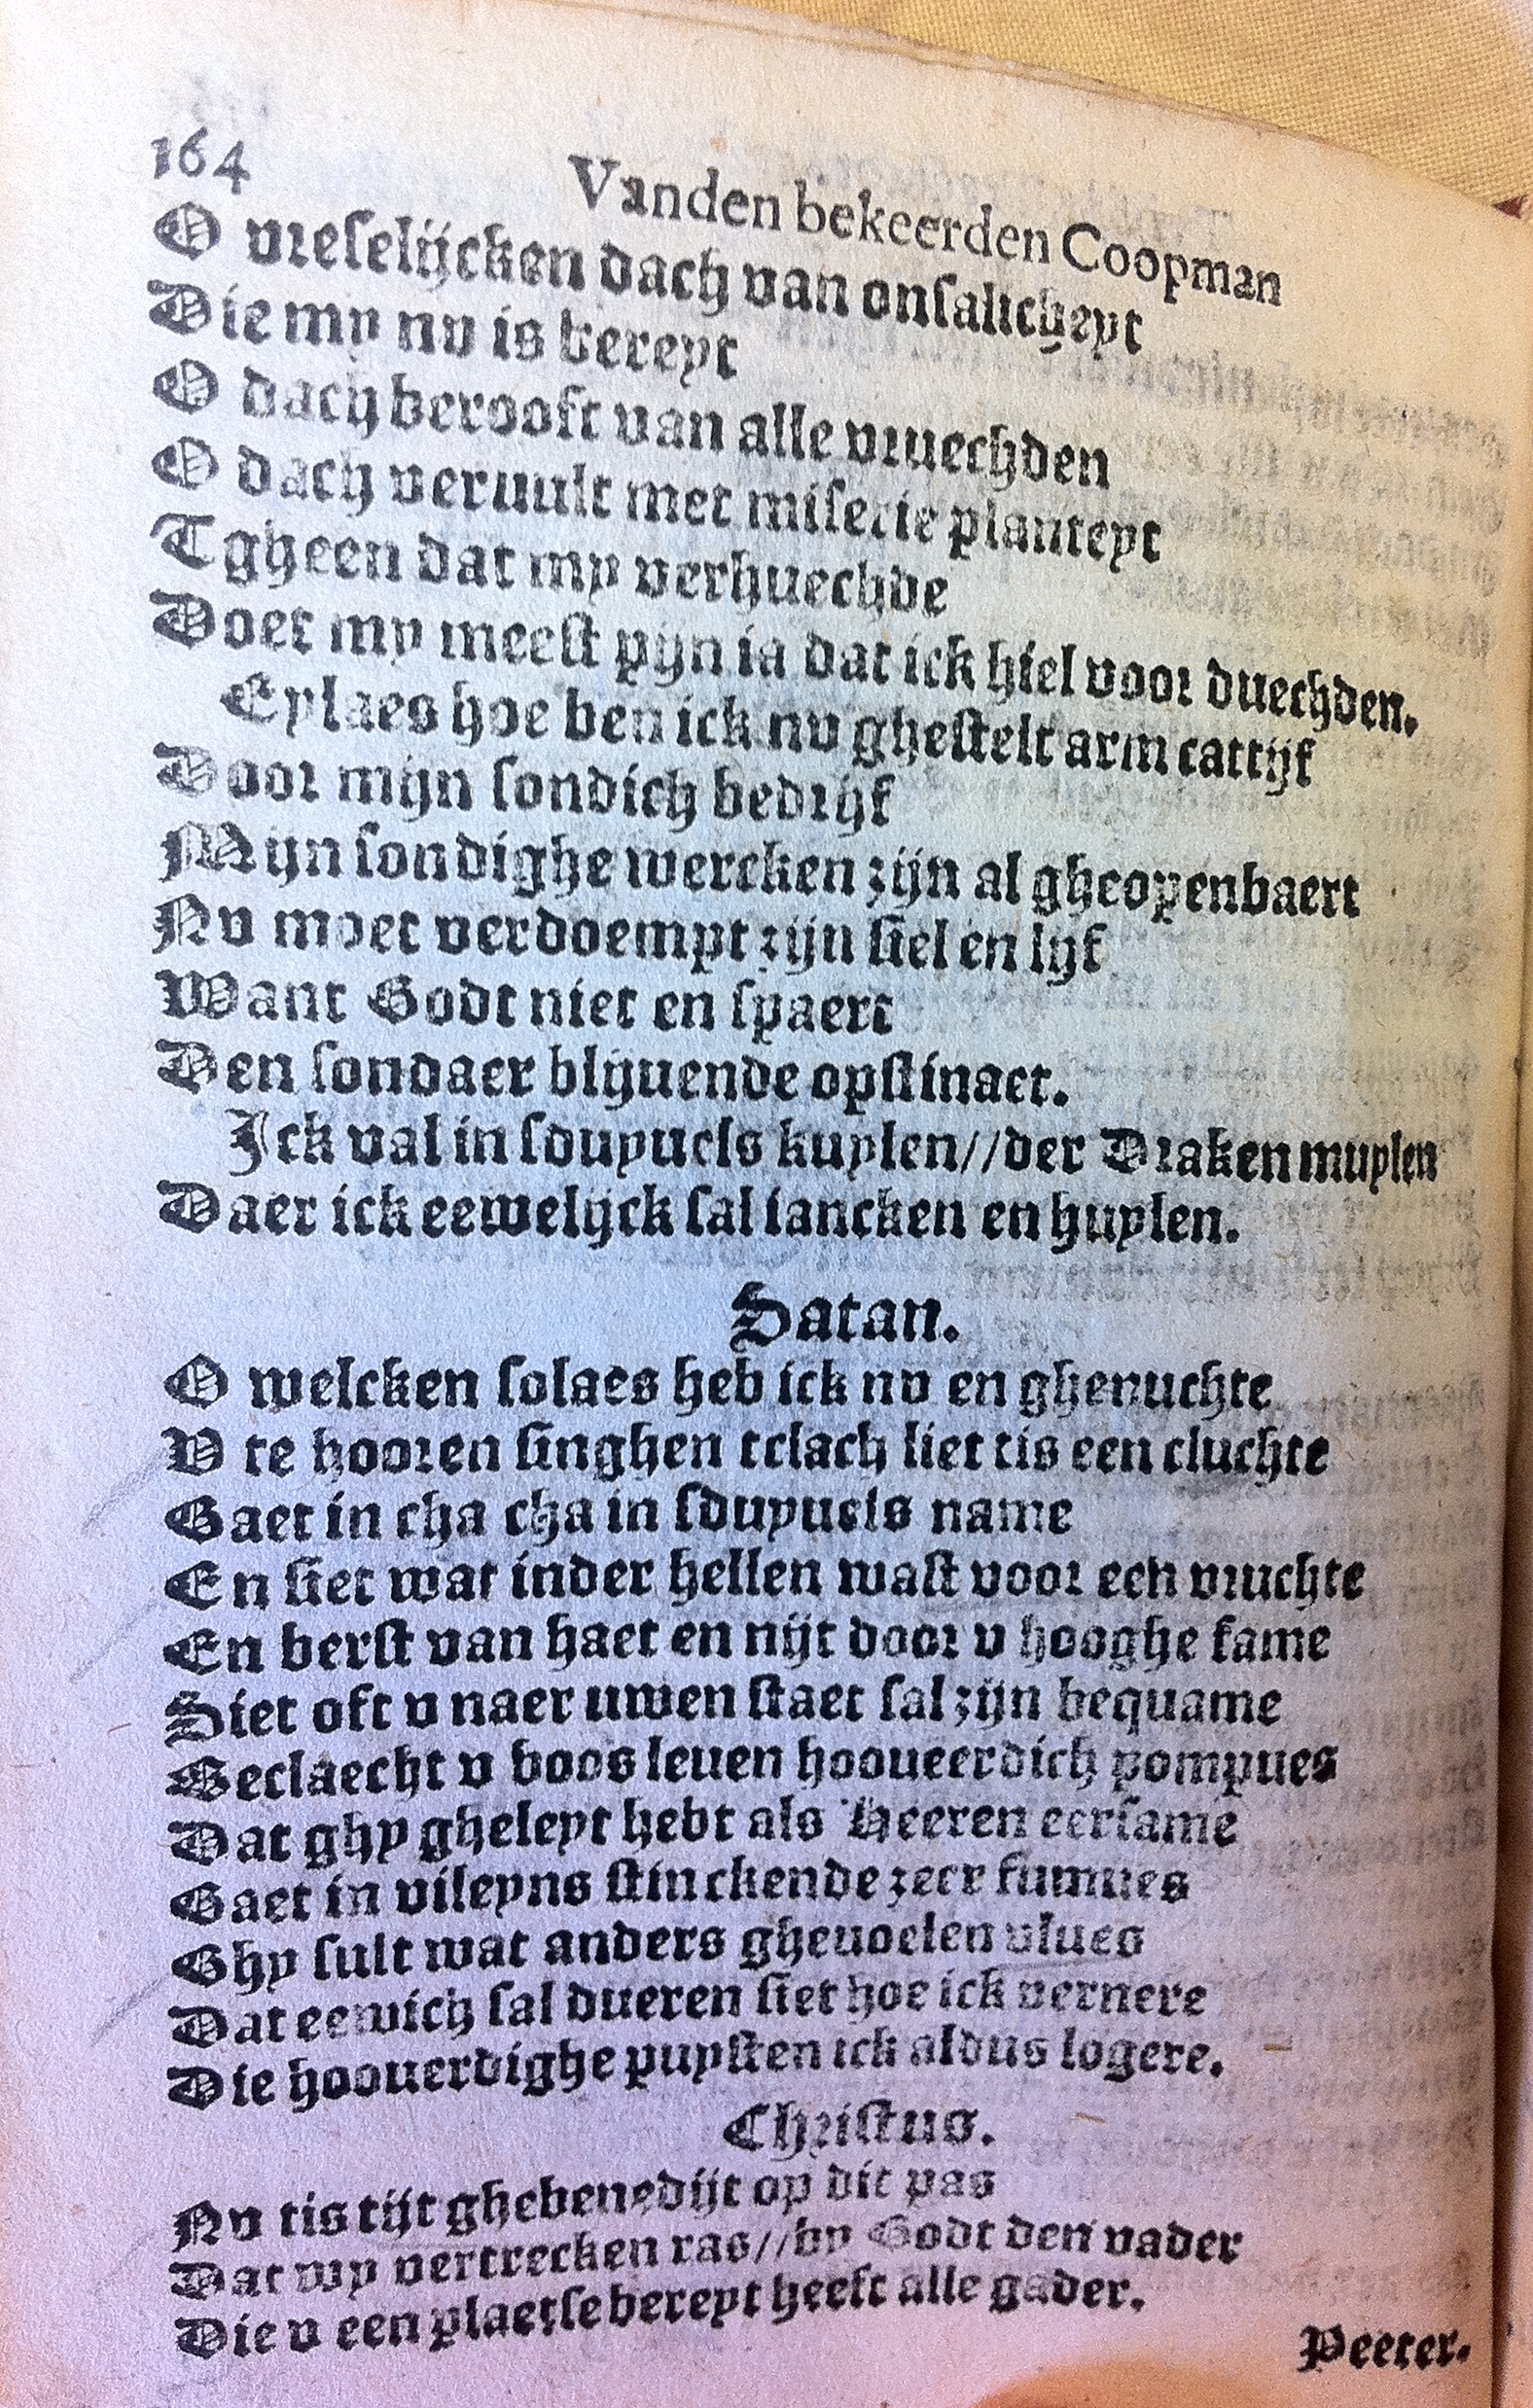 164
Vanden bekeerden Coopman
O vreselijcken dach van onsalicheyt
Die my nv is bereyt
O dach berooft van alle vruechden
O dach veruult met miserie planteyt
Tgheen dat my verhuechde
Doet my meest pijn ia dat ick hiel voor duechden.
Eylaes hoe ben ick nv ghestelt arm cattijf
Door mijn sondich bedrijf
Mijn sondighe wercken zijn al gheopenbaert
Nv moet verdoempt zijn siel en lijf
Want Godt niet en spaert
Den sondaer blijuende opstinaet.
Ick val in sduyuels kuylen//der Draken muylen
Daer ick eewelijck sal iancken en huylen.
Satan.
O welcken solaes heb ick nv en ghenuchte
V te hooren singhen tclach liet tis een cluchte
Gaet in cha cha in sduyuels name
En siet wat inder hellen wast voor een vruchte
En berst van haet en nijt door v hooghe fame
Siet oft v naer uwen staet sal zijn bequame
Beclaecht v boos leuen hooueerdich pompues
Dat ghy gheleyt hebt als Heeren eersame
Gaet in vileyns stinckende zeer fumues
Ghy sult wat anders gheuoelen vlues
Dat eewich sal dueren siet hoe ick vernere
Die hoouerdighe puysten ick aldus logere.
Christus.
Nv tis tijt ghebenedijt op dit pas
Dat wy vertrecken ras//by Godt den vader
Die v een plaetse bereyt heeft alle gader.
Peeter.